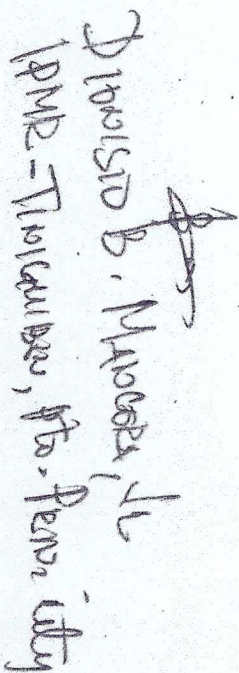 Dionisio B. Mangosa, Jr.
IPMR - Tiniguiban, Pto. Princ. City